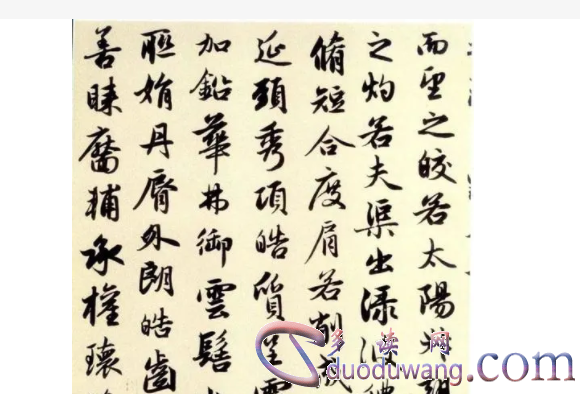 而望之皎若太陽升朝
之灼若夫渠出淥波禮
脩短合度肩若削成
延頸秀項皓質呈露
加鉛華弗御雲髻
聯娟丹脣外朗皓齒
善睞靨輔承權瓌
多读网
duoduwang.com